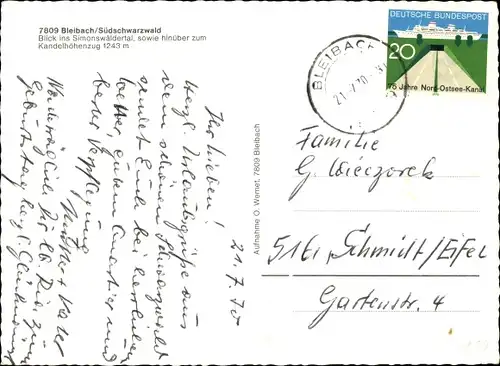 7809 Bleibach/Südschwarzwald
Blick ins Simonswäldertal, sowie hinüber zum
Kandelhöhenzug 1243 m
21.7.70
Ihr Lieben!
Herzl. Urlaubsgrüße aus
dem schönen Schwarzwald
sendet Euch bei herrlichem
Wetter, gutem Quartier und
bester Verpflegung
Mutter + Vater
Nachträglich Dir lb. Evi, zum
Geburtstag herzl. Glückwünsche
Aufnahme O. Wernet, 7809 Bleibach
BLEIBACH
21-7.70
DEUTSCHE BUNDESPOST
20
75 Jahre Nord-Ostsee-Kanal
Familie
G. Wieczorek
5161 Schmidt/Eifel
Gartenstr. 4